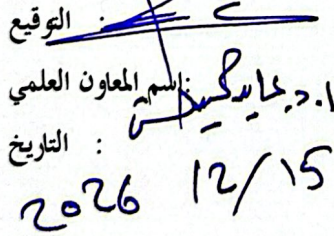 التوقيع :
اسم المعاون العلمي :
أ.د. عايد
التاريخ :
2026 12/15